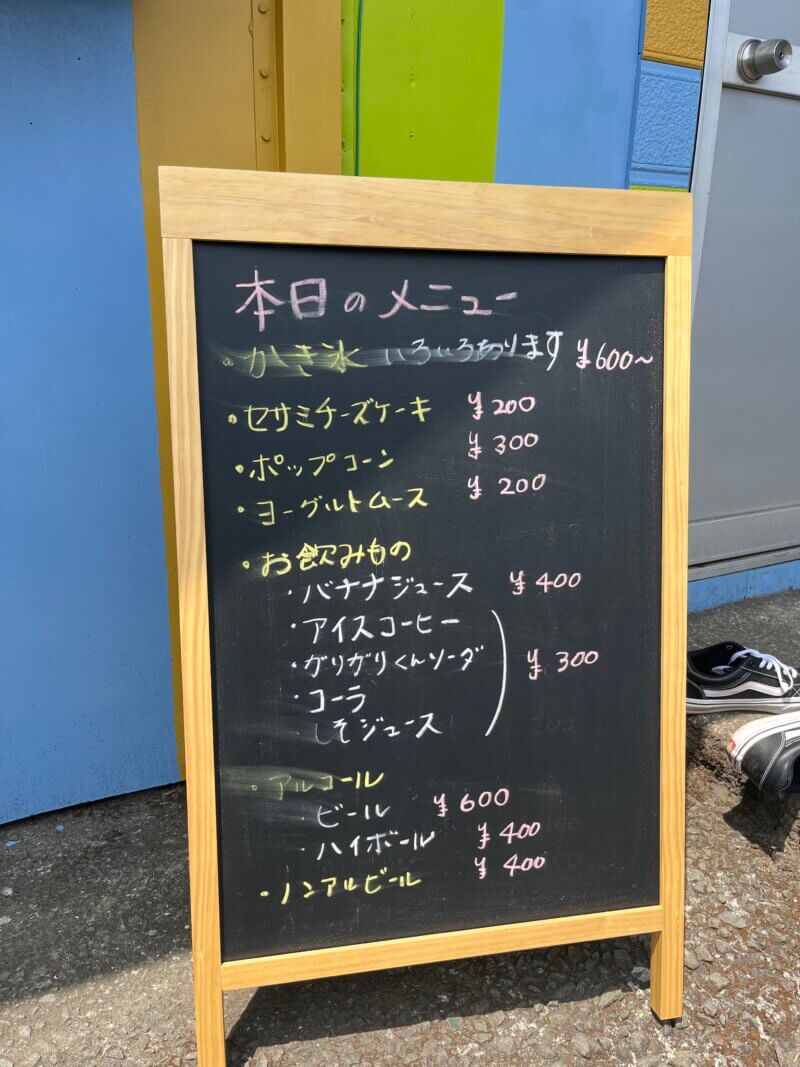 本日のメニュー
・かき氷 いろいろあります ¥600~
・セサミチーズケーキ ¥200
・ポップコーン ¥300
・ヨーグルトムース ¥200
・お飲みもの
・バナナジュース ¥400
・アイスコーヒー
・ガリガリくんソーダ ¥300
・コーラ
しそジュース
・アルコール
・ビール ¥600
・ハイボール ¥400
・ノンアルビール ¥400